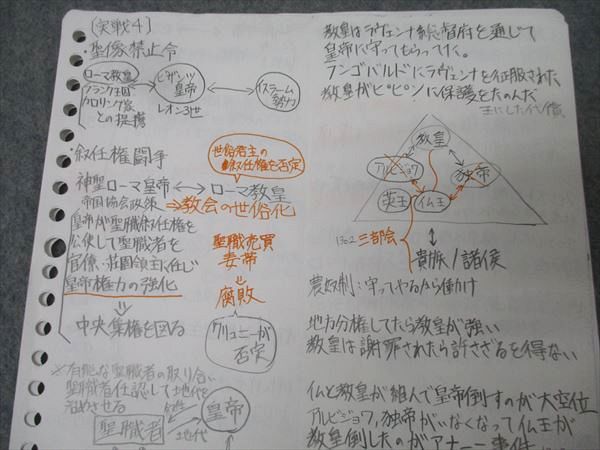 〔実戦4〕
・聖像禁止令
ローマ教皇
フランク王国
カロリング家
との提携
ビザンツ
皇帝
レオン3世
イスラーム
勢力
・叙任権闘争
世俗君主の
叙任権を否定
神聖ローマ皇帝 ⟷ ローマ教皇
帝国教会政策 ⇒教会の世俗化
皇帝が聖職叙任権を
公使して聖職者を
官僚・荘園領主に任じ
皇帝権力の強化
⇓
中央集権を図る
聖職売買
妻帯
⇓
腐敗
クリュニーが
否定
※有能な聖職者の取り合い
聖職者任認して地代を
治めさせる
聖職者
地代
皇帝
教皇はラヴェンナ総督府を通じて
皇帝に守ってもらってた。
ランゴバルドにラヴェンナを征服された
教皇がピピンに保護をたのんだ
王にした代償
教皇
アルビジョワ
独帝
英王
仏王
1302 三部会
貴族/諸侯
農奴制:守ってやるから働け
地方分権してたら教皇が強い
教皇は謝罪されたら許さざるを得ない
仏と教皇が組んで皇帝倒すのが大空位
アルビジョワ,独帝がいなくなって仏王が
教皇倒したのがアナーニ事件